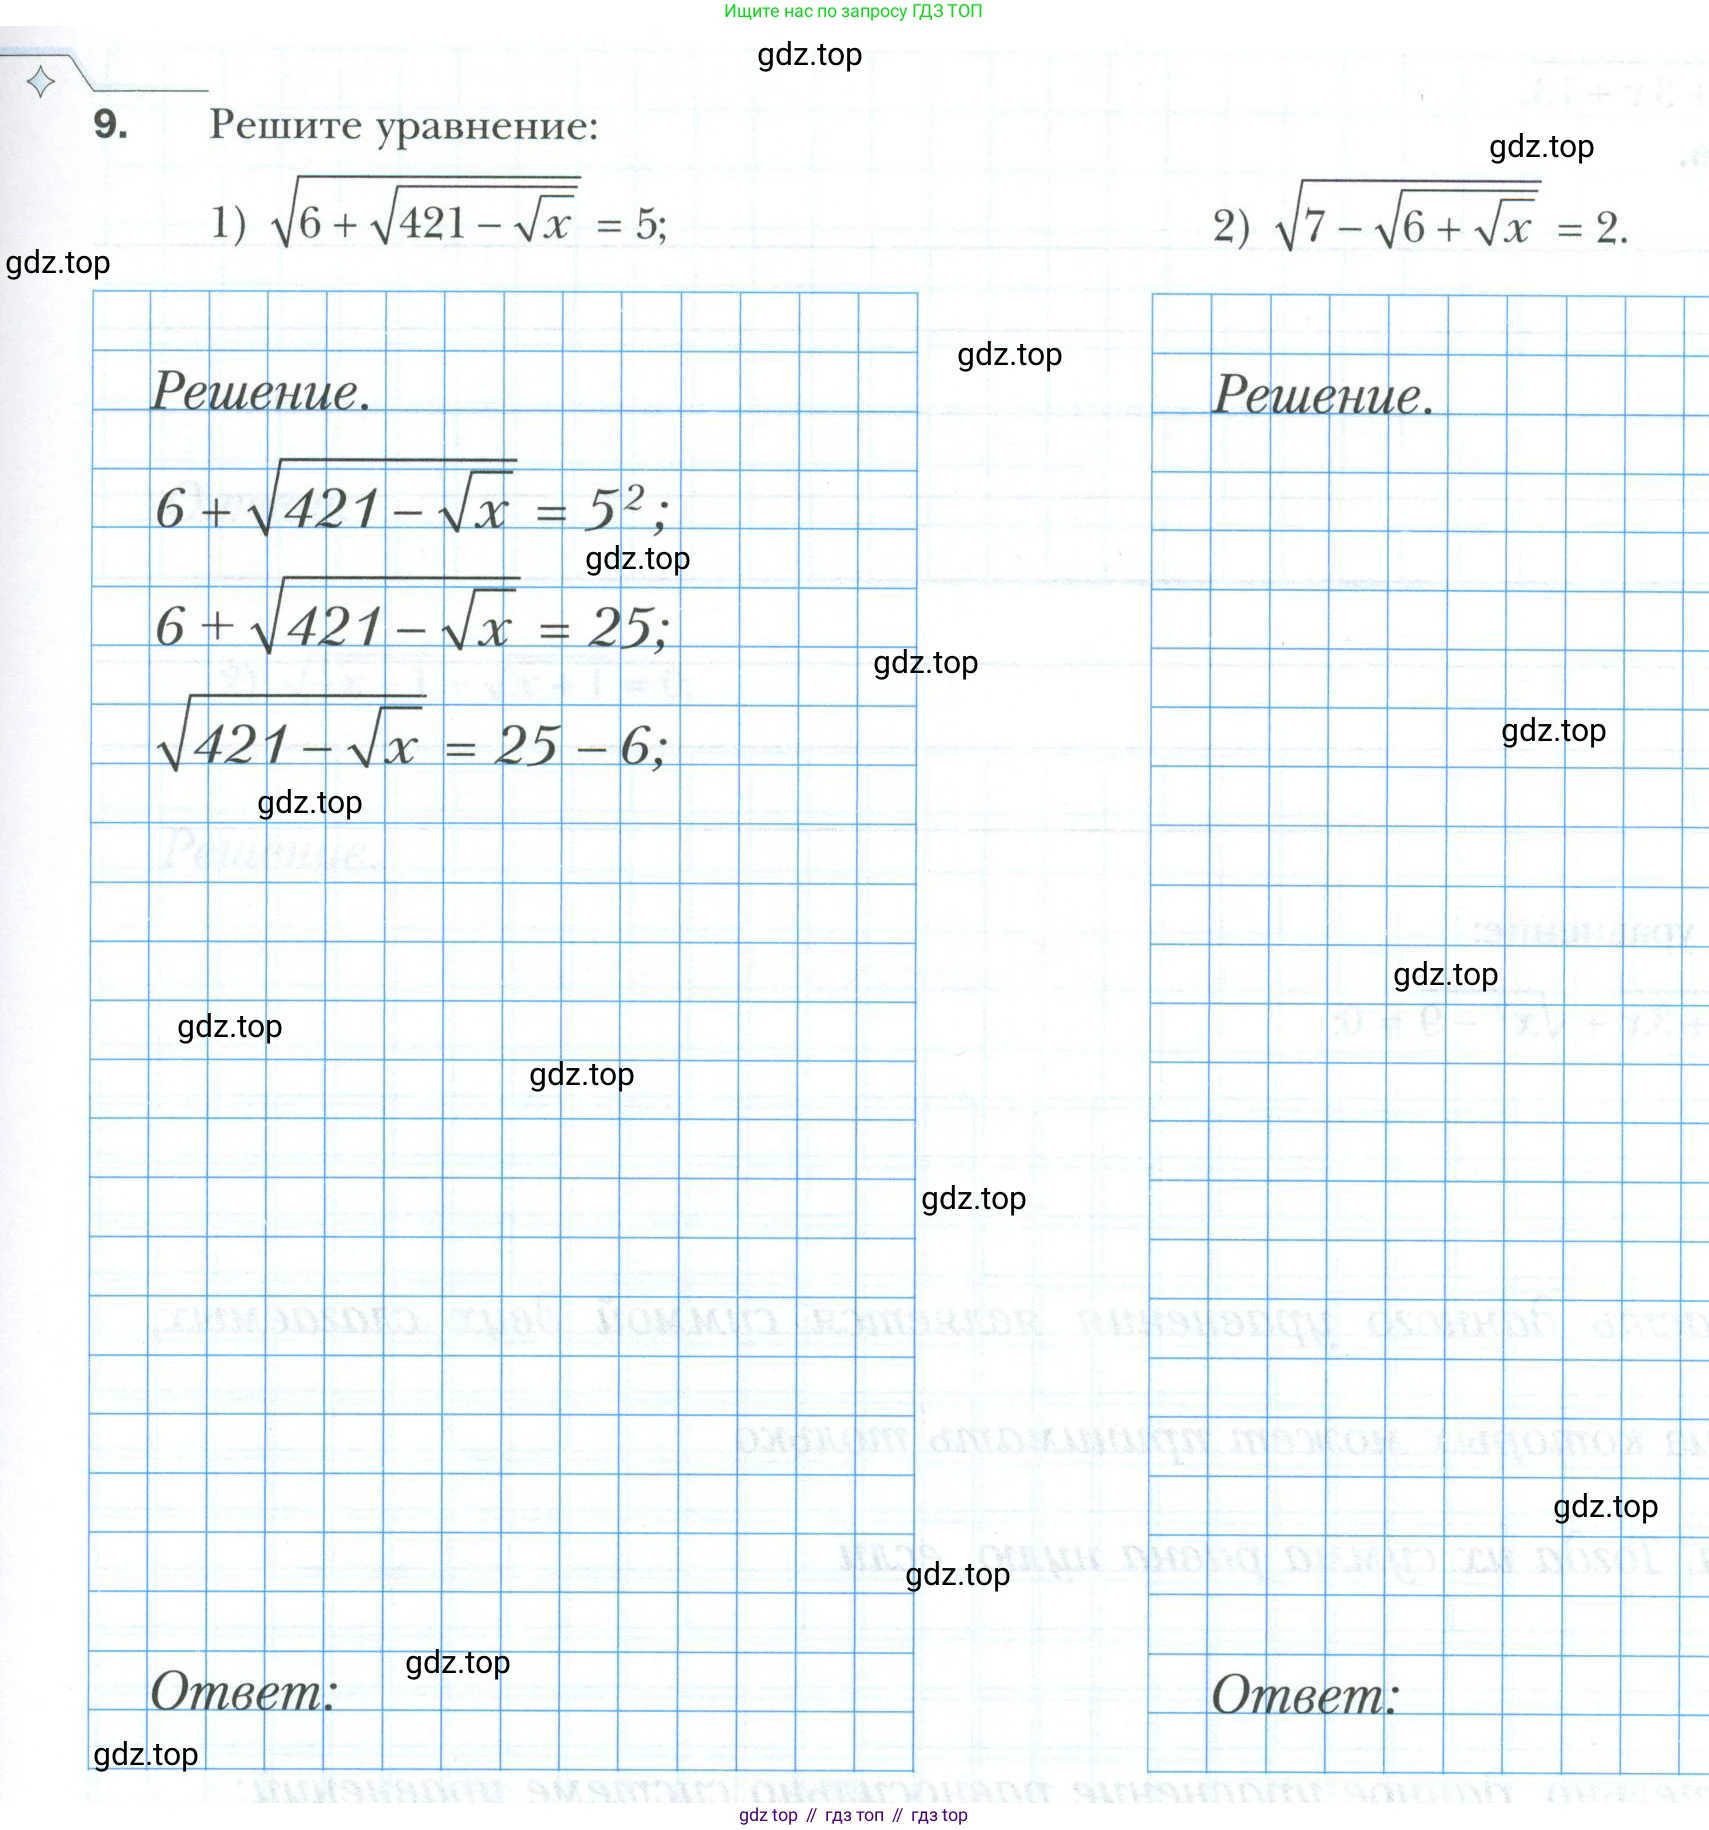 Ищите нас по запросу ГДЗ ТОП
gdz.top
9. Решите уравнение:
gdz.top
1) √(6 + √(421 − √x)) = 5;
2) √(7 − √(6 + √x)) = 2.
gdz.top
gdz.top
Решение.
Решение.
6 + √(421 − √x) = 5²;
gdz.top
6 + √(421 − √x) = 25;
gdz.top
√(421 − √x) = 25 − 6;
gdz.top
gdz.top
gdz.top
gdz.top
gdz.top
gdz.top
gdz.top
gdz.top
gdz.top
Ответ:
Ответ:
gdz.top
gdz top // гдз топ // гдз top